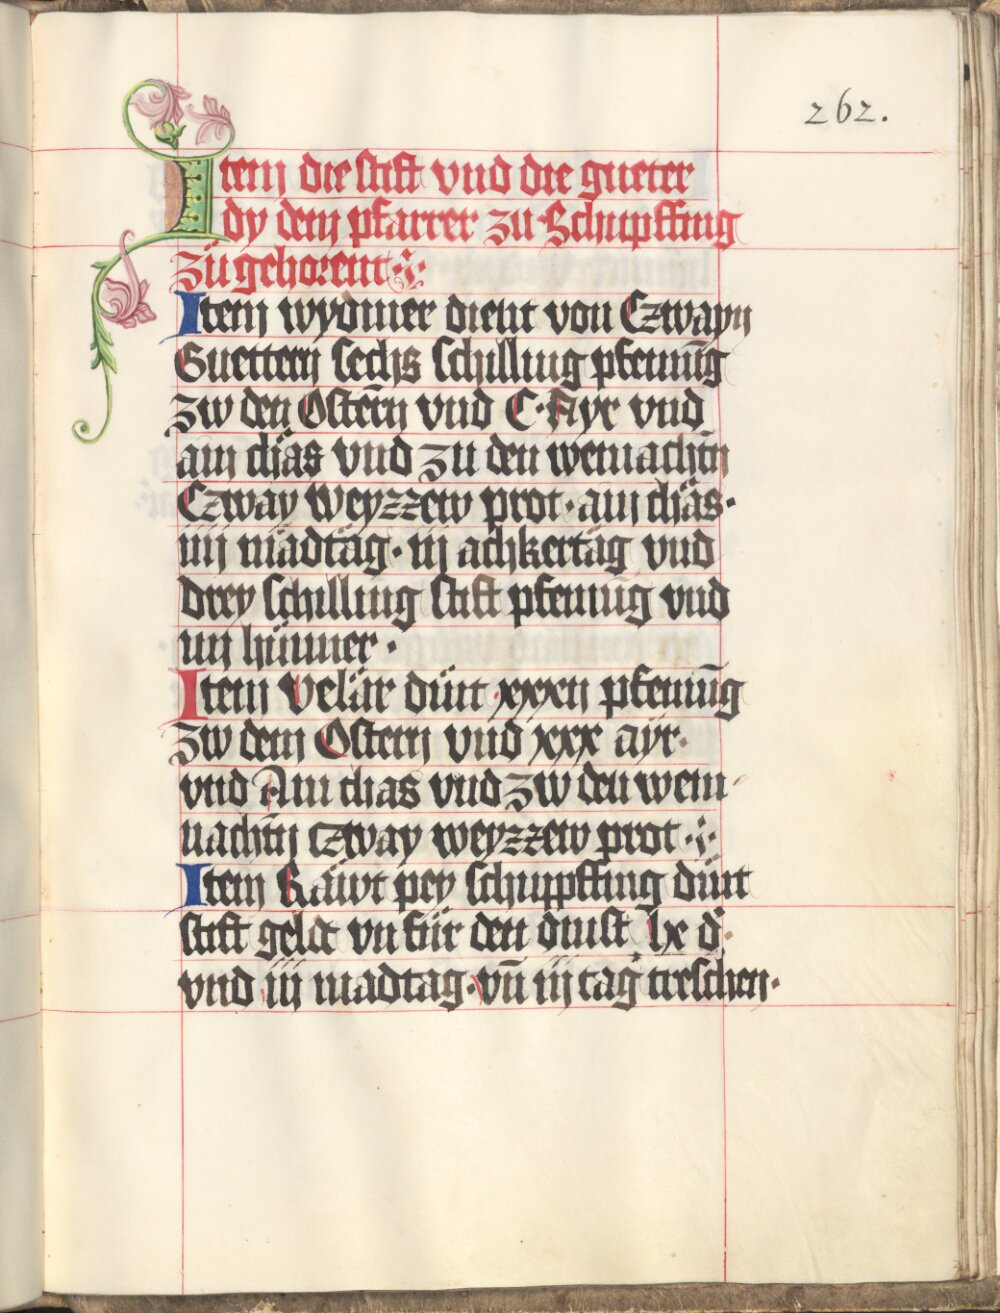 262.
Item die stift vnd die gueter
dy dem pfarrer zu Schnpffing
zü gehorent
Item wydmer dient von Czwayn
Guettern sechs schilling pfenni̅g
zw den Oste̅rn vnd C · Ayr vnd
ain chäs vnd zu den weinachtn̅
Czway weyzzew prot · ain chäs ·
iiij mädtäg · iij achkertäg vnd
drey schilling stift pfennig̅ vnd
iiij hünner ·
Item Velär dint xxxij pfennig̅
zw dem Ostern vnd xxx ayr ·
vnd Ain chas vnd zw den wein
nachtn̅ czway weyzzew prot ·
Item Räwt pey schnpffing dint
stift geldt vn für den dinst lx d
vnd iij madtag · vn̅ iij tag treschen ·